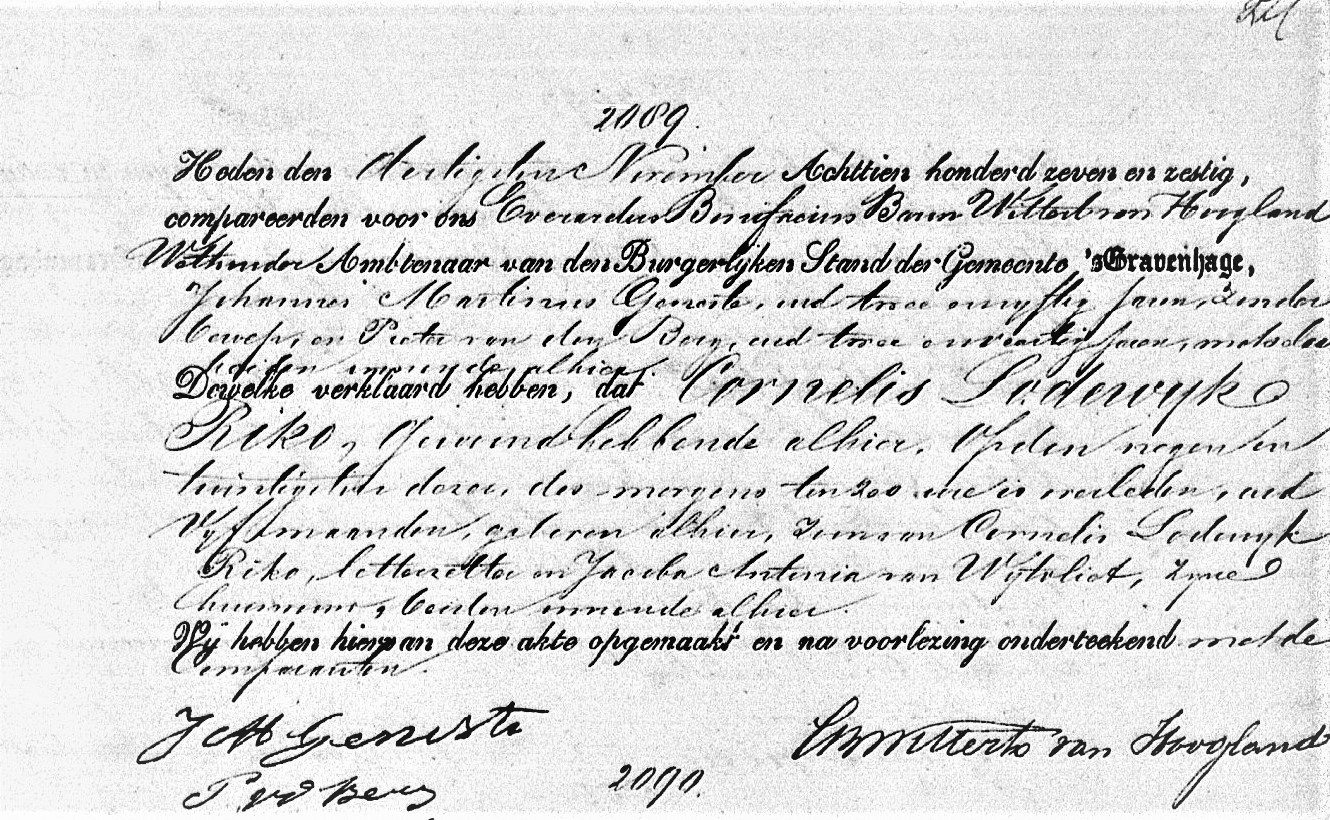 2089.
Heden den dertigsten November Achttien honderd zeven en zestig,
compareerden voor ons Everardus Bonifacius Baron Wittert van Hoogland
Wethouder Ambtenaar van den Burgerlijken Stand der Gemeente 's Gravenhage,
Johannes Martinus Geneste, oud twee en vyftig Jaren, zonder
beroep, en Pieter van den Berg, oud twee en veertig Jaren, metselaar
beiden wonende alhier.
Dewelke verklaard hebben, dat Cornelis Lodewyk
Riko, gewoond hebbende alhier, op den negen en
twintigsten dezer, des morgens ten zes ure is overleden, oud
Vyf maanden, geboren alhier, zoon van Cornelis Lodewyk
Riko, letterzetter en Jacoba Antonia van Wytvliet, zyne
huisvrouw, beiden wonende alhier.
Wij hebben hiervan deze akte opgemaakt en na voorlezing onderteekend met de
Comparanten.
J M Geneste
EBWittert van Hoogland
P. vd Berg
2090.